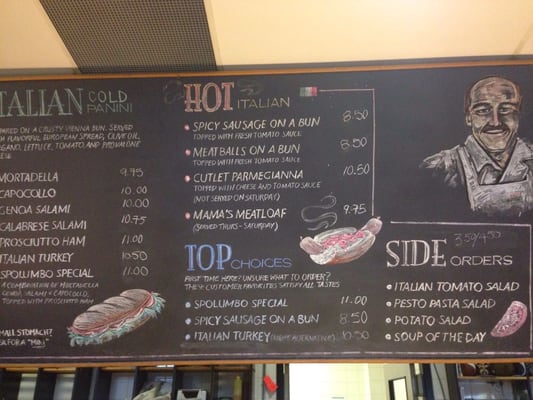 ITALIAN COLD PANINI
ON A CRUSTY VIENNA BUN. SERVED
FLAVORFUL EUROPEAN SPREAD, OLIVE OIL,
LETTUCE, TOMATO, AND PROVOLONE
MORTADELLA 9.75
CAPOCOLLO 10.00
GENOA SALAMI 10.00
CALABRESE SALAMI 10.75
PROSCIUTTO HAM 11.00
ITALIAN TURKEY 10.50
SPOLUMBO SPECIAL 11.00
A COMBINATION OF MORTADELLA
GENOA SALAMI & CAPOCOLLO,
TOPPED WITH PROSCIUTTO HAM
SMALL STOMACH?
ASK FOR A "MINI"
HOT ITALIAN
SPICY SAUSAGE ON A BUN 8.50
TOPPED WITH FRESH TOMATO SAUCE
MEATBALLS ON A BUN 8.50
TOPPED WITH FRESH TOMATO SAUCE
CUTLET PARMEGIANNA 10.50
TOPPED WITH CHEESE AND TOMATO SAUCE
(NOT SERVED ON SATURDAY)
MAMA'S MEATLOAF 9.75
(SERVED THURS - SATURDAY)
TOP CHOICES
FIRST TIME HERE? UNSURE WHAT TO ORDER?
THESE CUSTOMER FAVORITES SATISFY ALL TASTES
SPOLUMBO SPECIAL 11.00
SPICY SAUSAGE ON A BUN 8.50
ITALIAN TURKEY (LIGHT ALTERNATIVE) 10.50
SIDE ORDERS 3.50/4.50
ITALIAN TOMATO SALAD
PESTO PASTA SALAD
POTATO SALAD
SOUP OF THE DAY